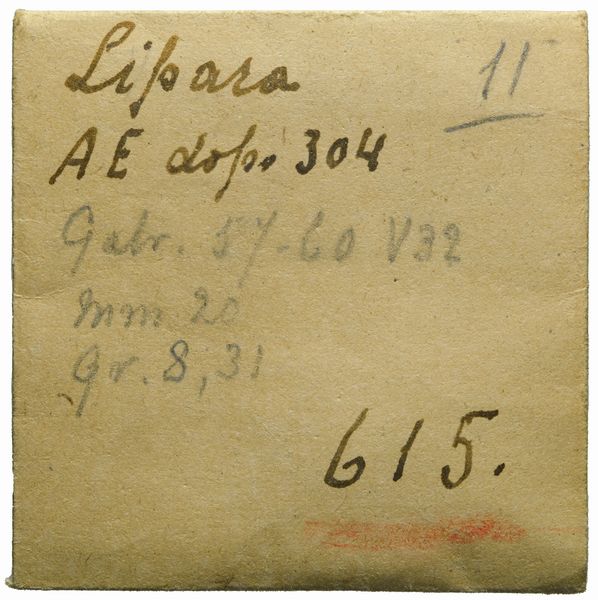 Lipara
11
AE dop. 304
Gabr. 57-60 V32
mm 20
gr. 8,31
615.